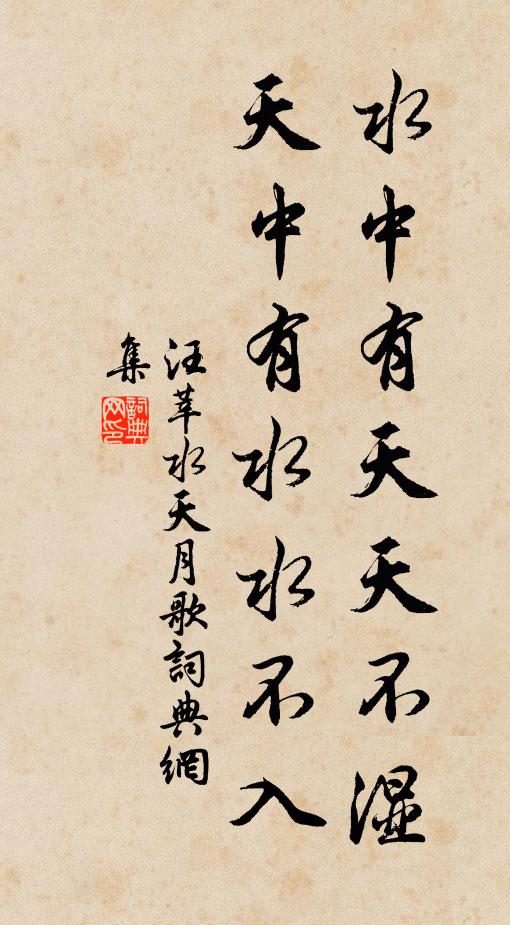 水中有天天不湿
天中有水水不入
汪莘水天月歌詞典網
集
詞典
网印